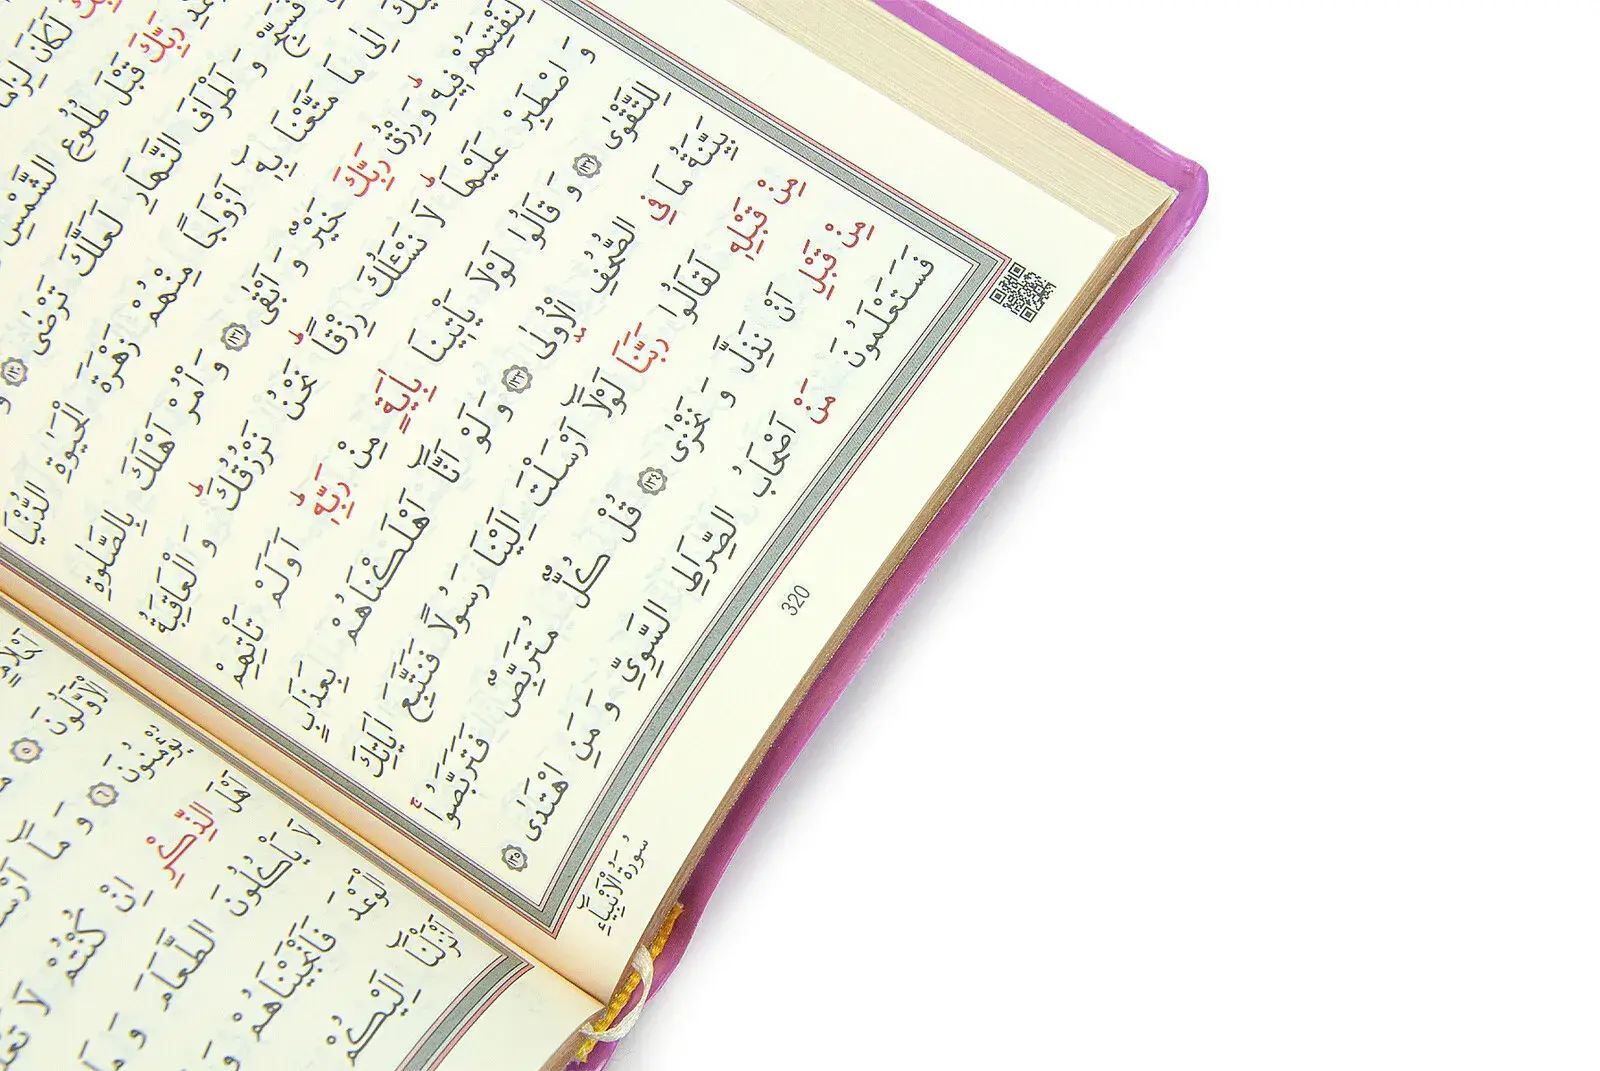 لَكَانَ لِزَامًا
رَبِّكَ قَبْلَ طُلُوعِ الشَّمْسِ
فَسَبِّحْ وَ اَطْرَافَ النَّهَارِ لَعَلَّكَ تَرْضٰى ﴿١٣٠﴾ وَ
اِلٰى مَا مَتَّعْنَا بِهٖٓ اَزْوَاجًا مِنْهُمْ زَهْرَةَ الْحَيٰوةِ الدُّنْيَا
لِنَفْتِنَهُمْ فٖيهِ وَ رِزْقُ رَبِّكَ خَيْرٌ وَ اَبْقٰى ﴿١٣١﴾ وَ اْمُرْ اَهْلَكَ بِالصَّلٰوةِ
وَ اصْطَبِرْ عَلَيْهَا لَا نَسْـَٔلُكَ رِزْقًا نَحْنُ نَرْزُقُكَ وَ الْعَاقِبَةُ
لِلتَّقْوٰى ﴿١٣٢﴾ وَ قَالُوا لَوْلَا يَاْتٖينَا بِاٰيَةٍ مِنْ رَبِّهٖ اَوَلَمْ تَاْتِهِمْ
بَيِّنَةُ مَا فِي الصُّحُفِ الْاُولٰى ﴿١٣٣﴾ وَ لَوْ اَنَّٓا اَهْلَكْنَاهُمْ بِعَذَابٍ
مِنْ قَبْلِهٖ لَقَالُوا رَبَّنَا لَوْلَٓا اَرْسَلْتَ اِلَيْنَا رَسُولًا فَنَتَّبِعَ اٰيَاتِكَ
مِنْ قَبْلِ اَنْ نَذِلَّ وَ نَخْزٰى ﴿١٣٤﴾ قُلْ كُلٌّ مُتَرَبِّصٌ فَتَرَبَّصُوا
فَسَتَعْلَمُونَ مَنْ اَصْحَابُ الصِّرَاطِ السَّوِيِّ وَ مَنِ اهْتَدٰى ﴿١٣٥﴾
320
سُورَةُ الْاَنْبِيَٓاءِ
اَحْلَامٍ
الْاَوَّلُونَ ﴿٥﴾
يُؤْمِنُونَ ﴿٦﴾ وَ مَٓا
اَهْلَ الذِّكْرِ اِنْ كُنْتُمْ لَا
لَا يَاْكُلُونَ الطَّعَامَ وَ مَا
الْوَعْدَ فَاَنْجَيْنَاهُمْ وَ
اَنْزَلْنَٓا اِلَيْكُمْ